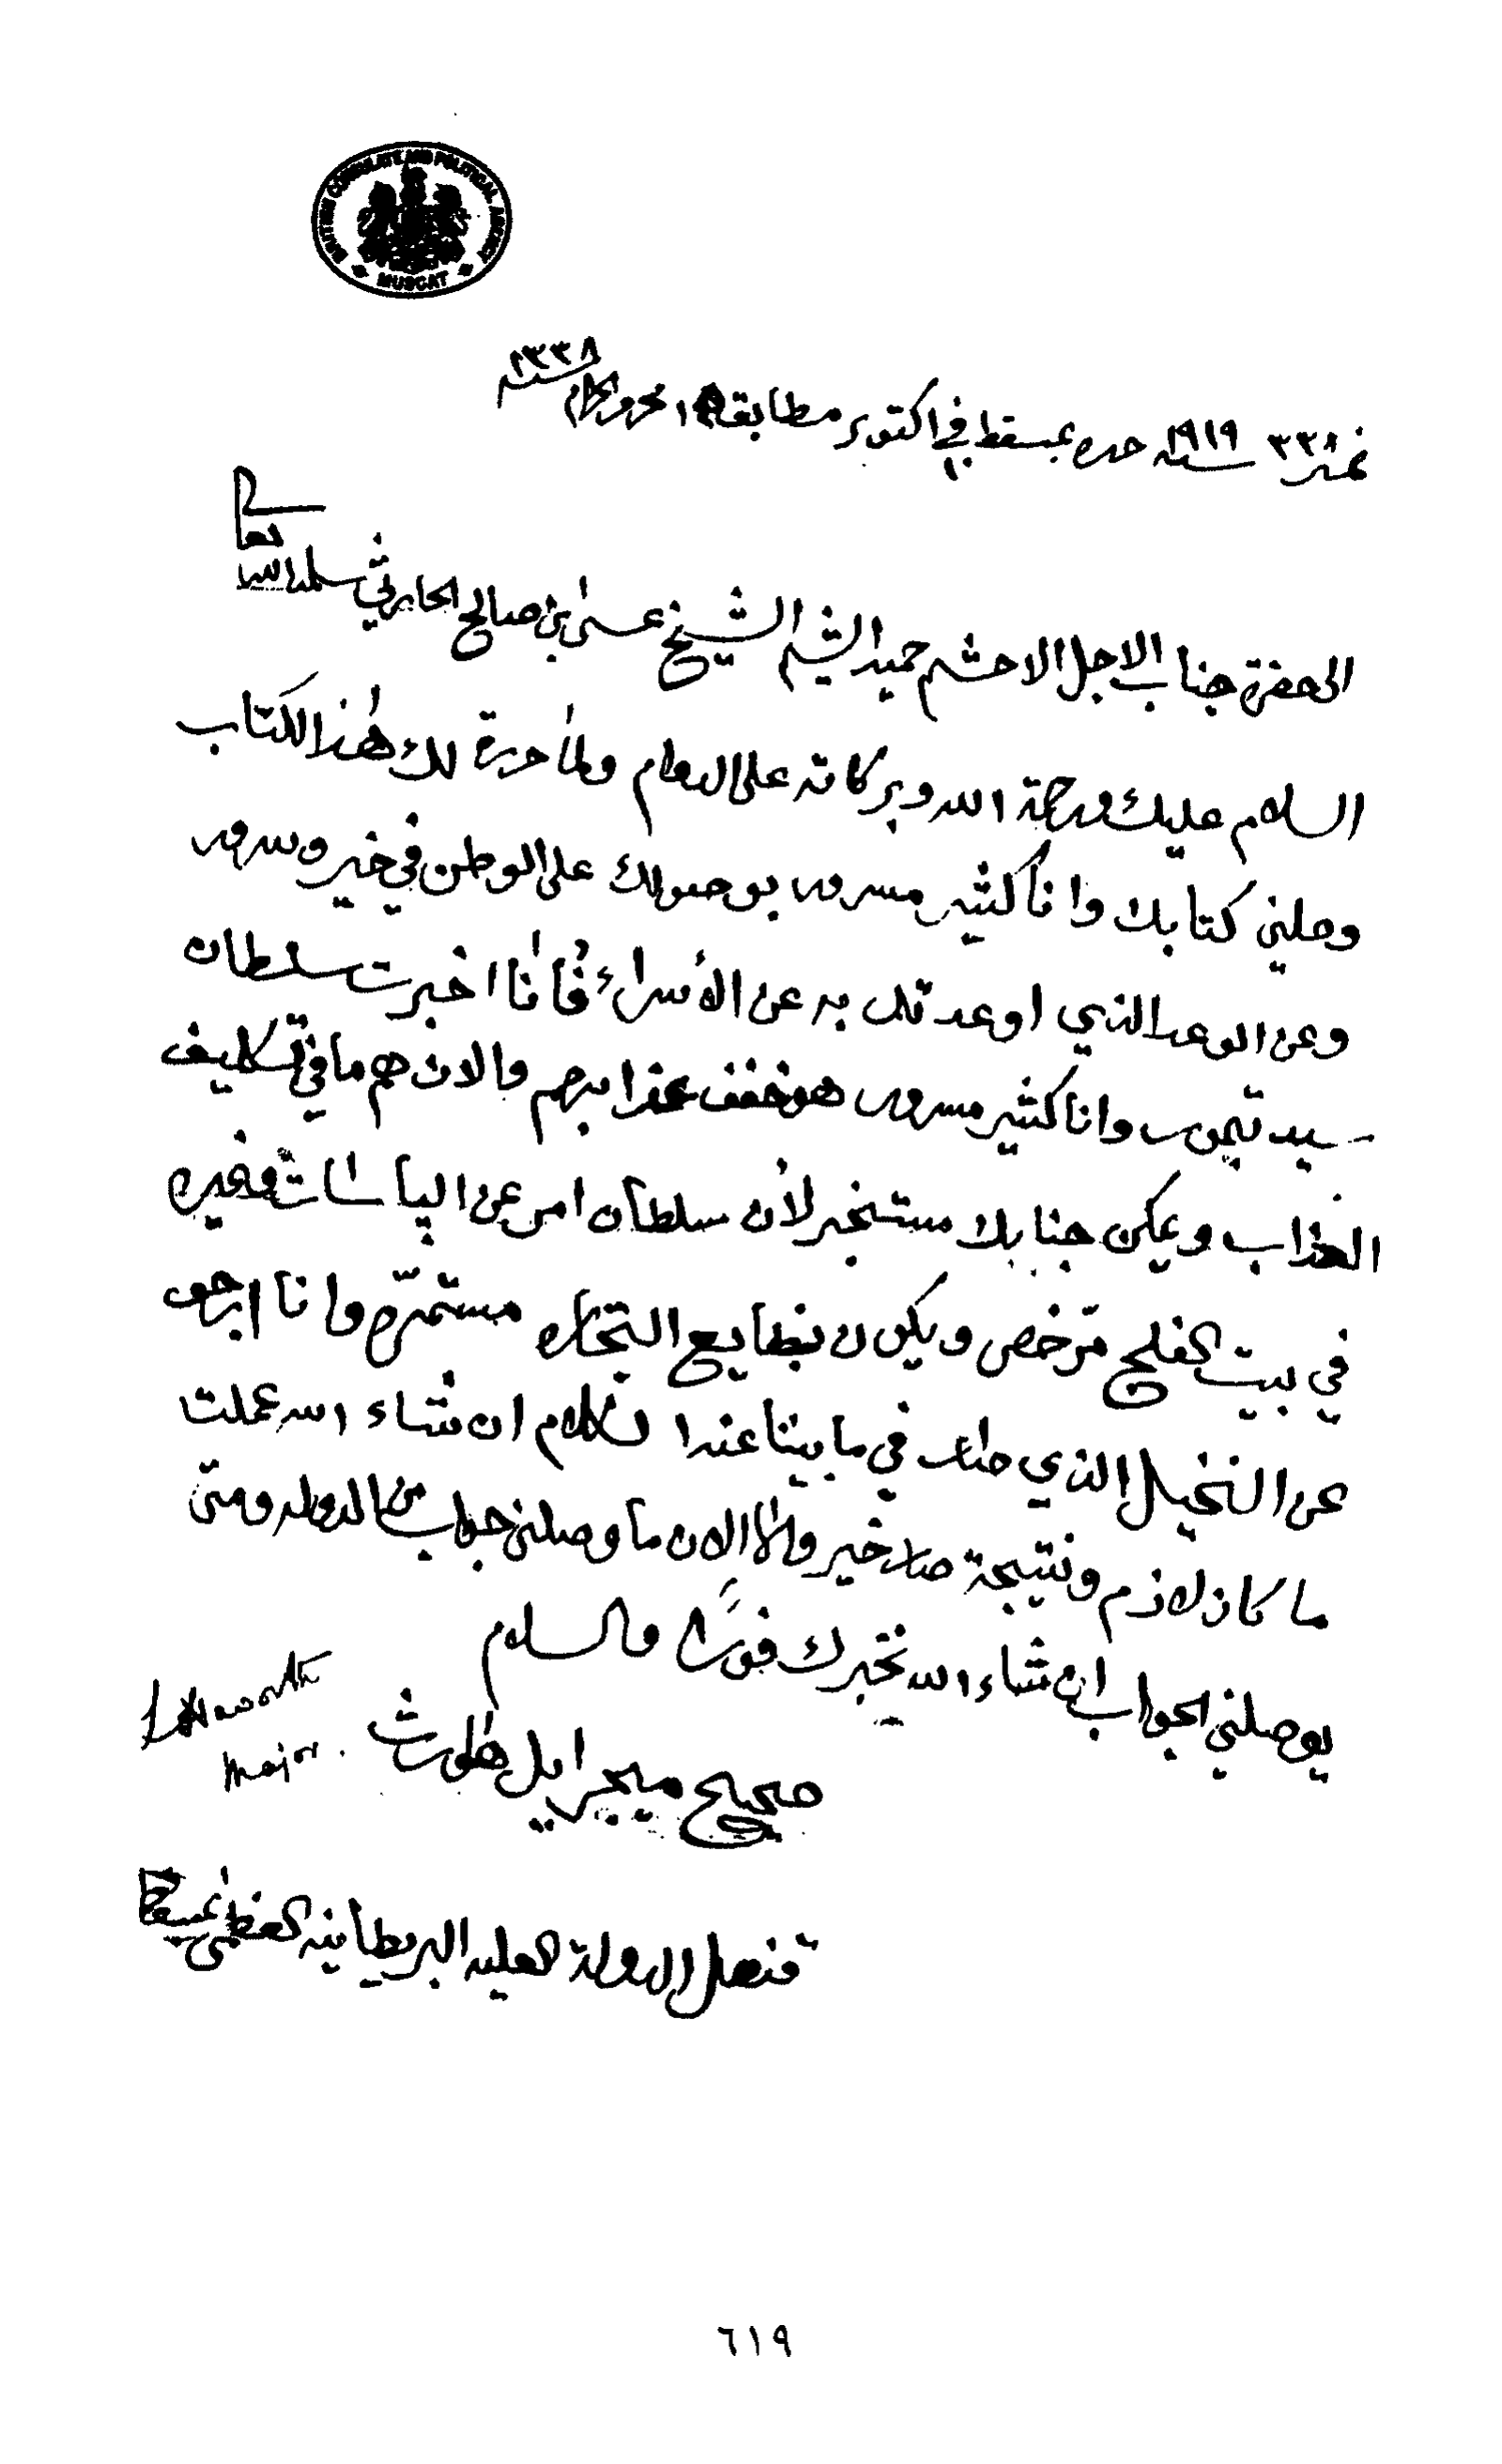 BRITISH CONSULATE AND POLITICAL AGENCY
MUSCAT
نمبر ٣٣٨ سنه ١٩١٩ حرره بمسقط في ١٠ اكتوبر مطابقه محرم الحرام سنه ١٣٣٨
الى حضرة جناب الاجل الاحشم حميد الشيم الشيخ عيسى بن صالح الحارثي سلمه الله تعالى
السلام عليك ورحمة الله وبركاته على الدوام ولما حررة لك هذا الكتاب
وصلني كتابك وانا كثير مسرور بوصولك على الوطن في خير وسرور
وعن الوعد الذي اوعدتك به عن الأسراء فأنا اخبرت سلطان
سيد تيمور وانا كثير مسرور هو خفف عذابهم والان هم ما في تكليف
العذاب ويمكن جنابك مستخبر لأن سلطان امر عن الپاسات
في بيت الفلج ترخص ويكون بطايع التجاره وانا ارجو
عن النخيل الذي صار في ما بيننا عندا كلام ان شاء الله عملت
ما كان لازم ونتيجة صار خير والى الان ما وصلني جواب من الدوله ومتى
يوصلني الجواب ان شاء الله نخبرك فورًا والسلام
صحيح ميجر ايل هاورث
L Haworth
Major.
قنصل الدولة العليه البريطانيه العظمى بمسقط
٦١٩